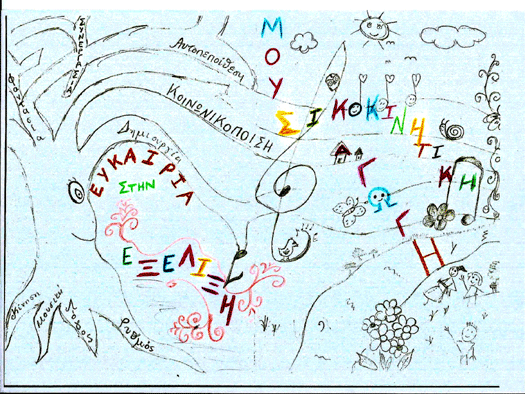 ΣΥΝΕΡΓΑΣΙΑ
Φαντασία
Αυτοπεποίθεση
ΚΟΙΝΩΝΙΚΟΠΟΙΗΣΗ
Δημιουργία
ΜΟΥΣΙΚΟΚΙΝΗΤΙΚΗ
ΑΓΩΓΗ
ΕΥΚΑΙΡΙΑ
ΣΤΗΝ
ΕΞΕΛΙΞΗ
Κίνηση
Μουσική
Λόγος
Ρυθμός